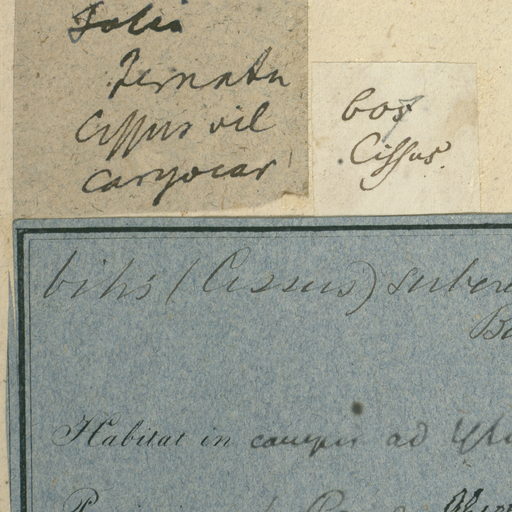 Folia
Ternata
Cissus vel
caryocar
Cissus.
Vitis (Cissus) subere
Ba
Habitat in campis ad